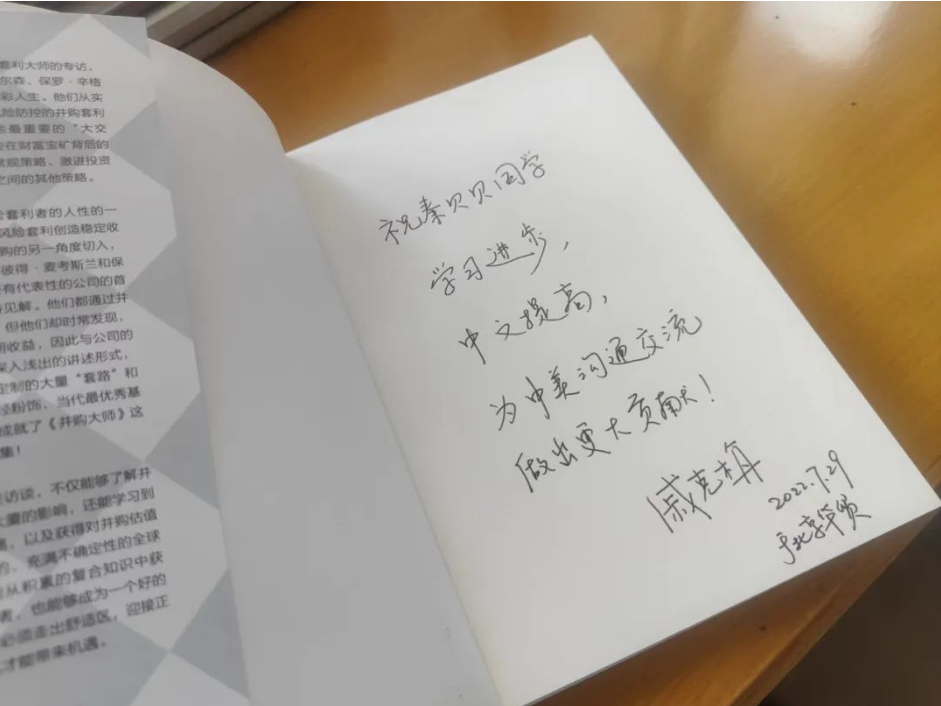 套利大师的专访,
尔森、保罗·辛格
彩人生。他们从实
风险防控的并购套利
些最重要的“大交
在财富宝矿背后的
常规策略、激进投资
之间的其他策略。
套利者的人性的一
风险套利创造稳定收
购的另一角度切入,
彼得·麦考斯兰和保
有代表性的公司的首
见解。他们都通过并
但他们却时常发现,
期收益,因此与公司的
深入浅出的讲述形式,
定制的大量“套路”和
经粉饰、当代最优秀基
成就了《并购大师》这
集!
访谈,不仅能够了解并
大厦的影响,还能学习到
,以及获得对并购估值
的、充满不确定性的全球
从积累的复合知识中获
者,也能够成为一个好的
必须走出舒适区,迎接正
才能带来机遇。
祝秦贝贝同学
学习进步,
中文提高,
为中美沟通交流
做出更大贡献!
戚克栴
2022.7.29
于北京华贸